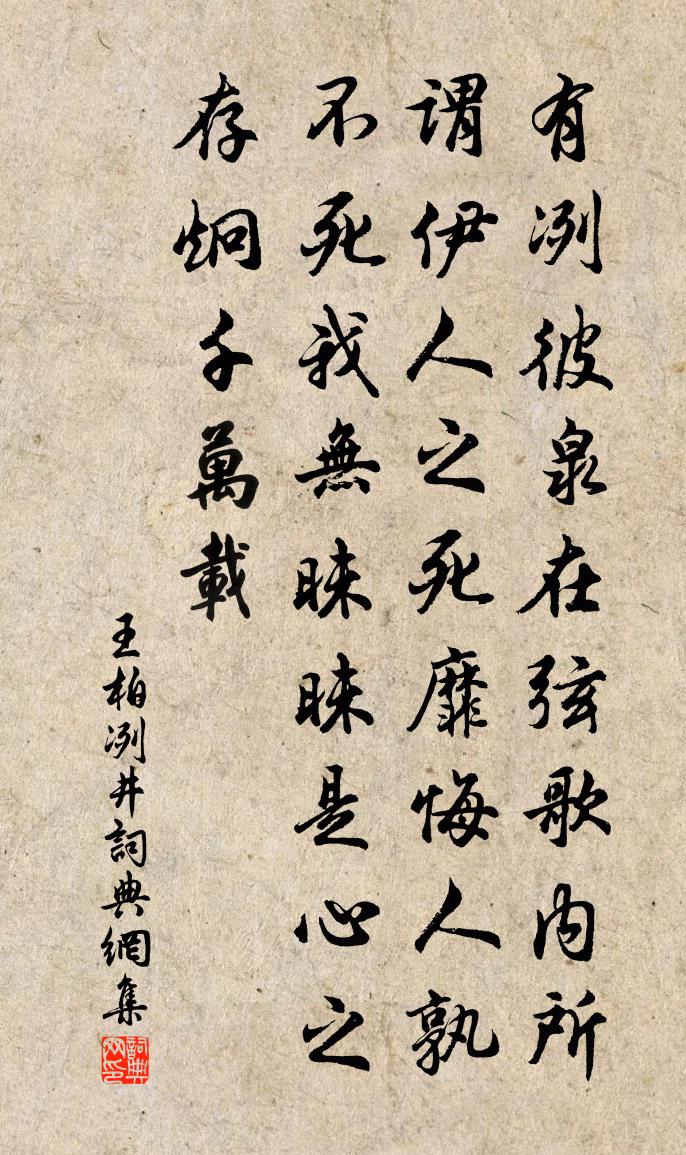 有冽彼泉在弦歌内所
謂伊人之死靡悔人孰
不死我無昧昧是心之
存炯千萬載
王柏冽井詞典網集
詞典网印